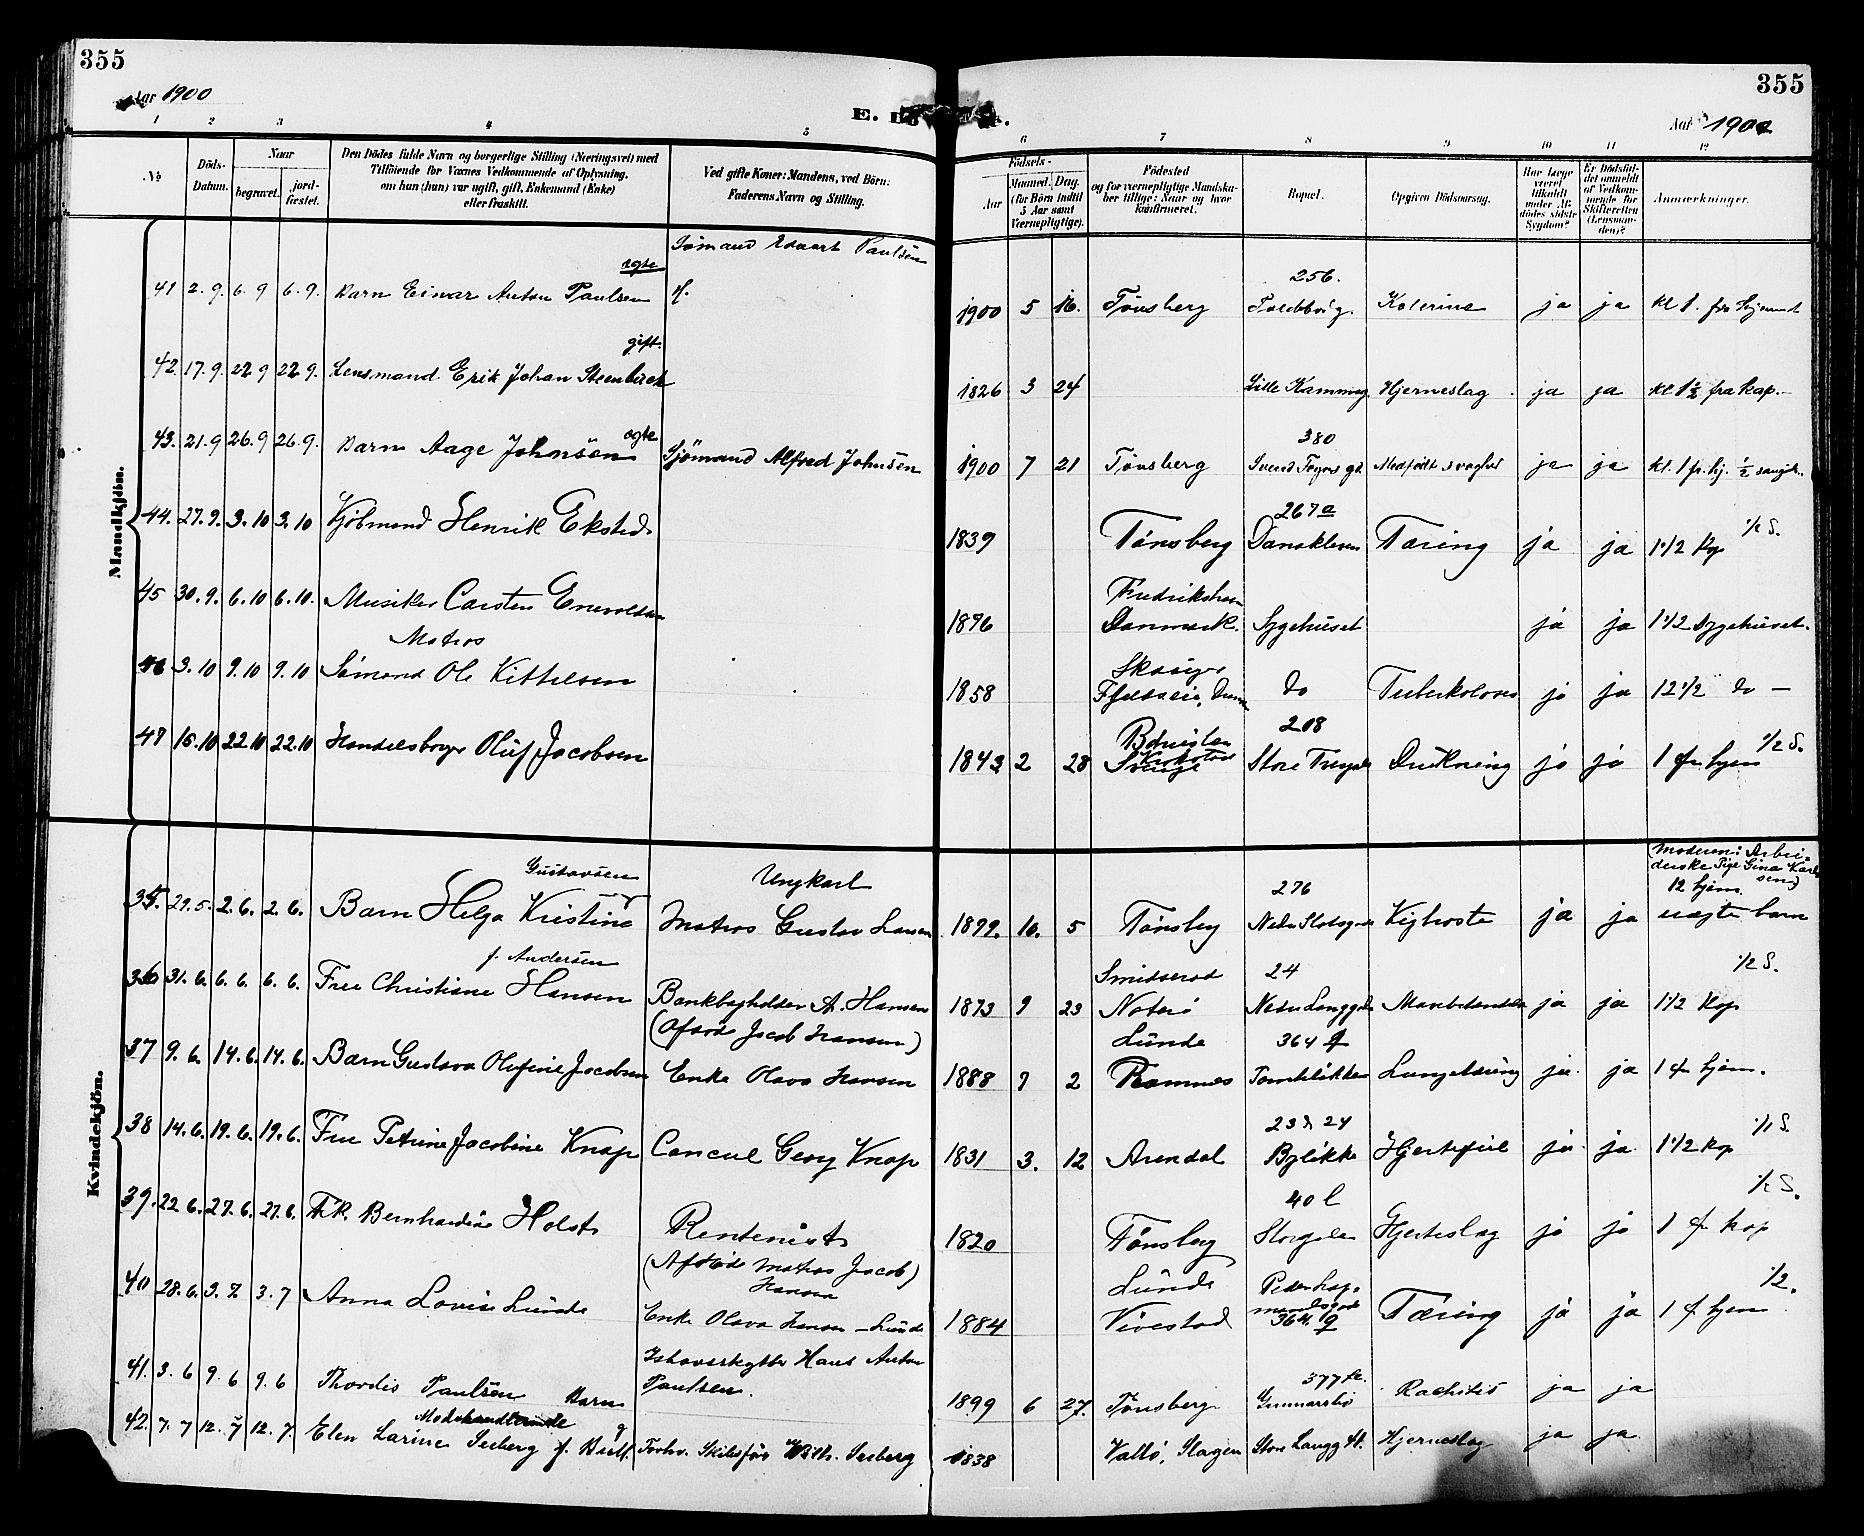 355
355
Aar 1900
E.
Aar 1900
1 2 3 4 5 6 7 8 9 10 11 12
No
Döds-Datum.
Naar
begravet.
jord-fæstet.
Den Dödes fulde Navn og borgerlige Stilling (Næringsvei) med
Tilföiende for Voxnes Vedkommende af Oplysning,
om han (hun) var ugift, gift, Enkemand (Enke)
eller fraskilt.
Ved gifte Koner: Mandens, ved Börn:
Faderens Navn og Stilling.
Födsels-
Aar
Maaned. Dag.
(for Börn indtil
5 Aar samt
Værnepligtige).
Födested
og for værnepligtige Mandska-
ber tillige: Naar og hvor
konfirmeret.
Bopæl.
Opgiven Dödsaarsag.
Har læge
været
tilkaldt
under Af-
dödes sidste
Sygdom?
Er Dödsfal-
det anmeldt
af Vedkom-
mende for
Skifteretten
(Lensman-
den)?
Anmærkninger.
Mandkjön.
Sømand Edvart Paulsen
ægte
41 2.9. 6.9 6.9. Barn Einar Anton Paulsen
256.
1900 5 16. Tønsberg Kolerine ja ja kl 1. fra Hjemmet
gift.
42. 17.9. 22.9 22.9. Lensmand Erik Johan Steenbuch
1826 3 24 Lille Hjerneslag ja ja kl 1½ fra kap.
ægte
43. 21.9 26.9 26.9. Barn Aage Johnsen Sjömand Alfred Johnsen
380
1900 7 21 Tønsberg Svend Foyns gd. Medfødt svaghed ja ja kl. 1 fr. hj. ½
44. 27.9. 3.10 3.10 Kjöbmand Henrik Eksted
267a
1839 Tønsberg Tæring ja ja 1 1/2 Kap 1/2 S.
45 30.9. 6.10 6.10. Musiker Carsten Enevoldsen
Fredrikshavn
1876 Danmark. Sygehuset ja ja 1 1/2 Sygehuset.
Matros
46 3.10 9.10 9.10 Sømand Ole Kittelsen
1858 do Tuberkolose ja ja 12 1/2 do —
47 15.10 22.10 22.10 Handelsborger Oluf Jacobsen
208
1843 2 28 Sverige Store Drukning ja ja 1 fra hjem 1/2 S.
Kvindekjön.
Gustavsen Ungkarl
35. 29.5. 2.6. 2.6. Barn Helga Kristine Matros Gustav Larsen
276
(Moderen: Arbei-
derske Pige Gina Karl-
sen)
12 hjem.
1899. 10. 5 Tønsberg Nedre Slotsgade Kighoste ja ja uægte barn
f. Andersen
36 31.6. 6.6. 6.6. Frue Christiane Hansen Bankbogholder A. Hansen
Smidsrød 24
1873 9 23 Nøterø Nedre Langgade ja ja 1 1/2 Kap 1/2 S.
(Afdøde Jacob Hansen)
37 9.6. 14.6. 14.6. Barn Gustava Olefine Jacobsen Enke Olava Hansen
Lunde 364 q
1888 9 2 Ramnes Lungetæring ja ja 1 fr hjem.
38 14.6. 19.6. 19.6. Frue Petrine Jacobine Knap Consul Georg Knap
23 & 24
1831 3. 12 Arendal Hjertefeil ja ja 1 1/2 kap 1/1 S.
39. 22.6. 27.6. 27.6. Frk. Bernhardine Holst Rentenist
40 l
1820 Tønsberg Storgaden Hjerteslag ja ja 1 fr kap 1/2 S.
(Afdøde Matros Jacob
Hansen)
40 28.6. 3.7. 3.7 Anna Lovise Lunde Enke Olava Hansen — Lunde
Lunde
364 q
1884 Vivestad Tæring ja ja 1 fr hjem 1/2.
41. 3.6 9.6 9.6 Thordis Paulsen Barn Ishavsskytter Hans Anton
Paulsen.
377
1899 6 27. Tønsberg Gunnarsbø Rachitis ja ja
Modehandlerinde
42. 7.7 12.7 12.7. Elen Larine Seeberg f. Forhv. Skibsfør. Wilh. Seeberg
1838 Vallø, Slagen Store Langg Hjerneslag ja ja